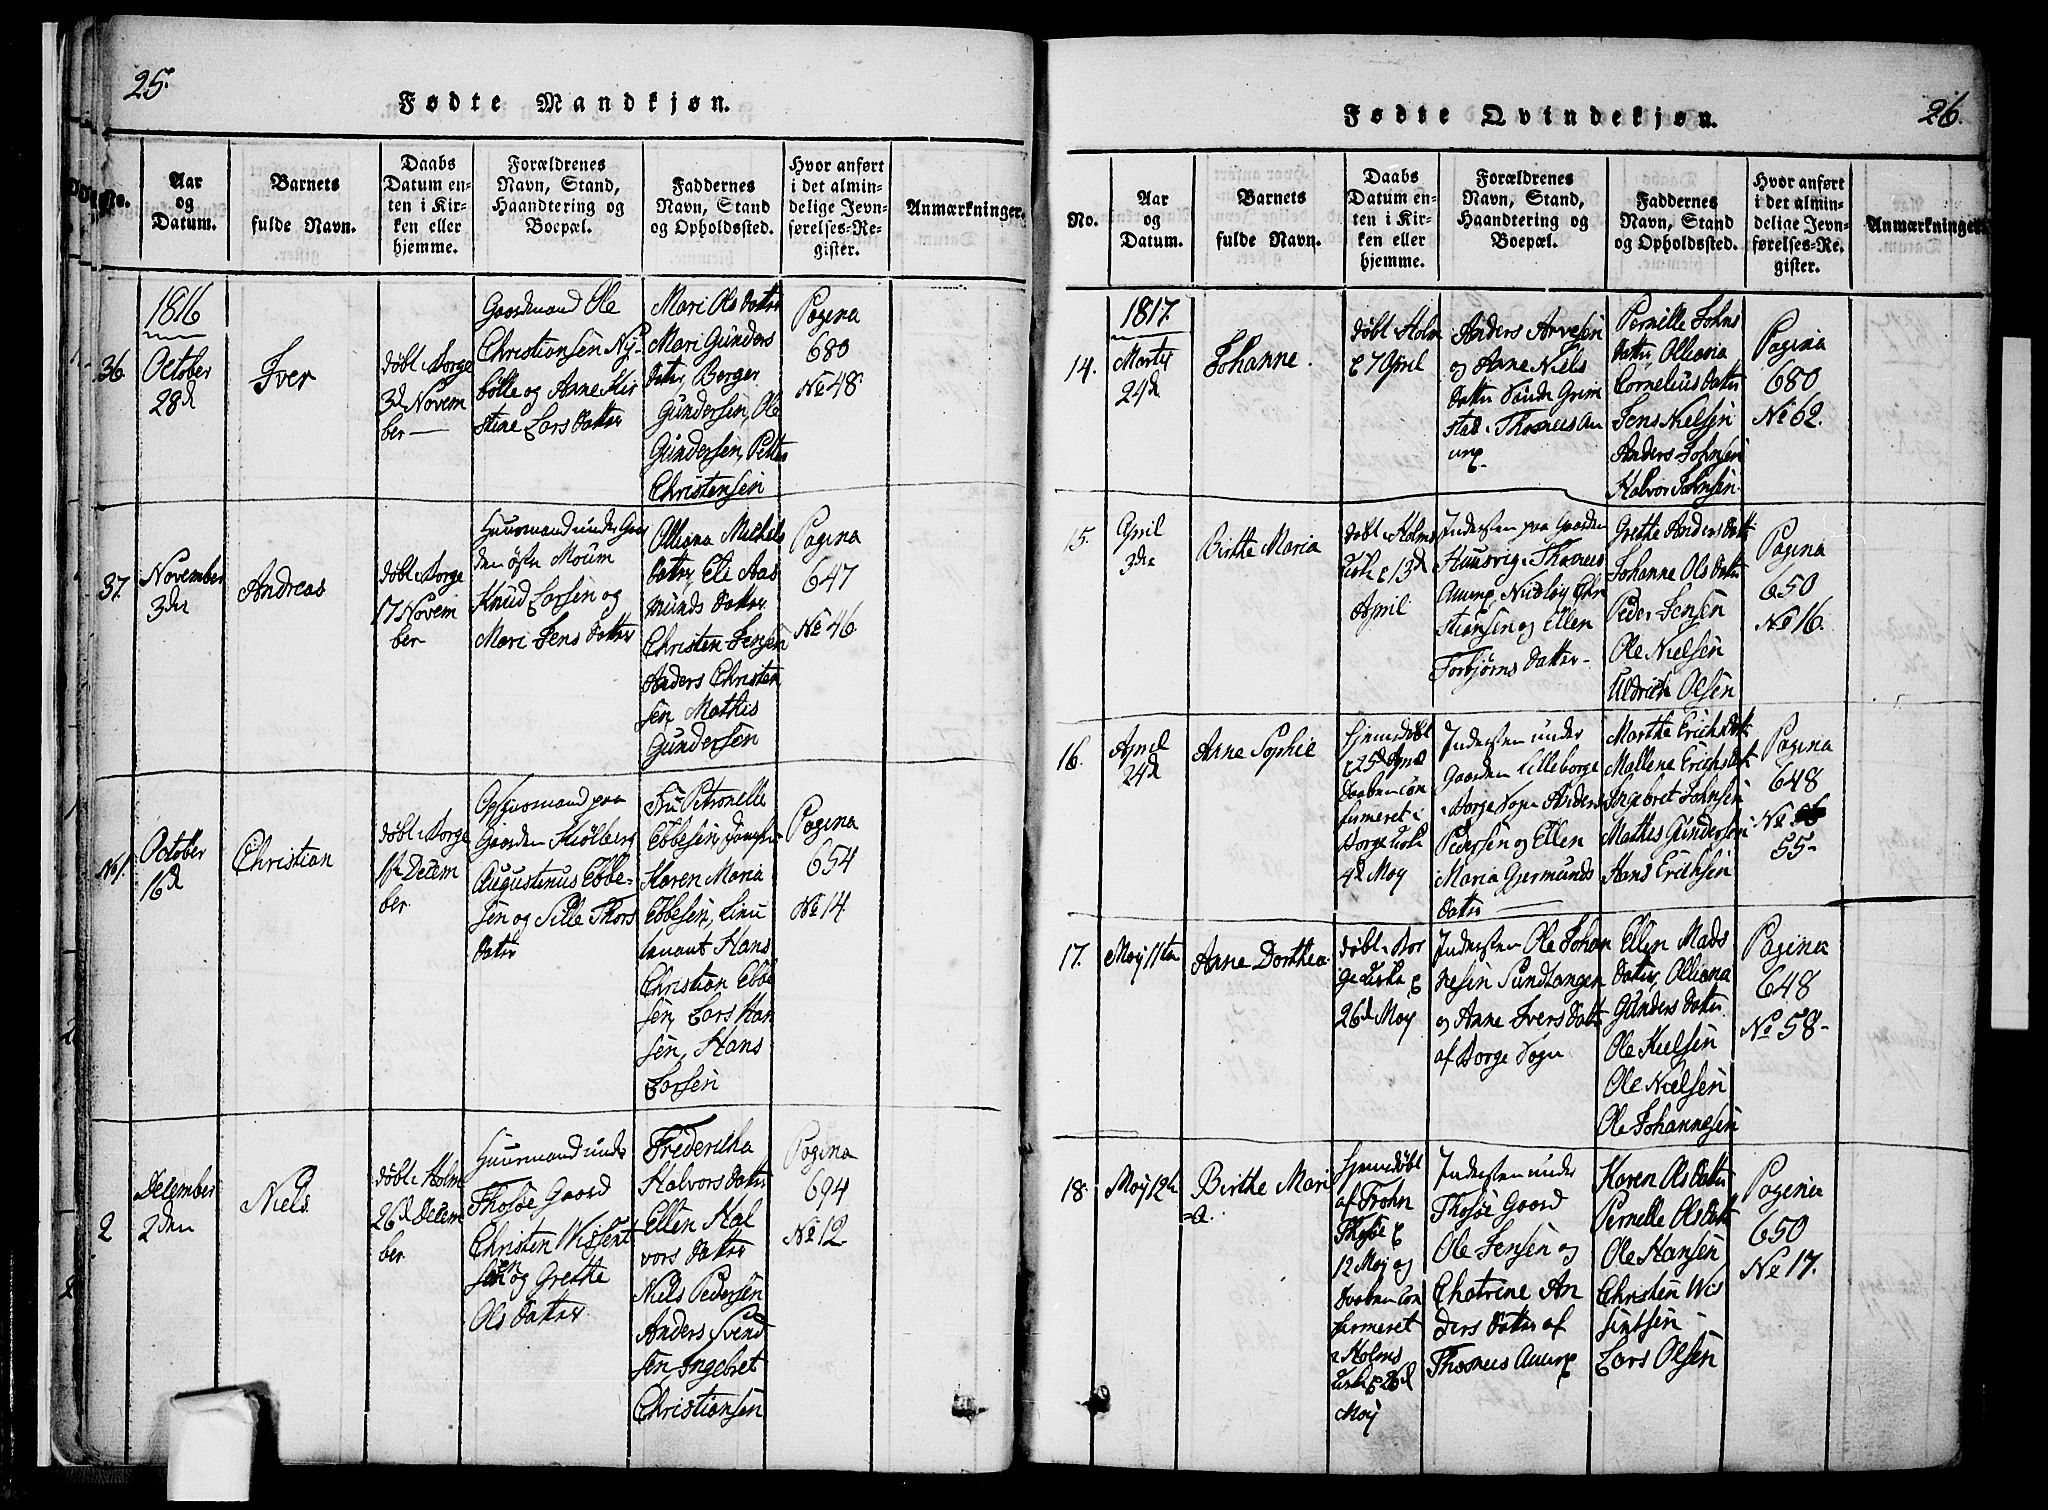 25.
Fødte Mandkjøn.
No.
Aar
og
Datum.
Barnets
fulde Navn.
Daabs
Datum en-
ten i Kir-
ken eller
hjemme.
Forældrenes
Navn, Stand,
Haandtering og
Boepæl.
Faddernes
Navn, Stand
og Opholdssted.
Hvor anført
i det almin-
delige Jevn-
førelses-Re-
gister.
Anmærkninger.
36.
1816
October
28d
Iver
døbt i Borge
3d Novem
ber
Gaardmand Ole
Christiansen Ny-
bølle og Anne Kir
stine Lars Datter
Mari Ols Datter
Mari Gunders
Datter, Berger
Gundersen, Ole
Gundersen, Petter
Christensen
Pagina
680
No 48.
37.
November
3die
Andreas
døbt i Borge
17 Novem
ber
Huusmand under Gaar
den øste Moum
Knud Larsen og
Mari Jens Datter
Olliana Michels
Datter, Eli Aas
munds Datter
Christen Jensen
Anders Christen
sen, Mathis
Gundersen
Pagina
647
No 46
No 1.
October
16d
Christian
døbt i Borge
1st Decem
ber
Opsidsmand paa
Gaarden Kiølberg
Augustenus Ebbe-
sen og Sille Thors
Datter
Fru Petronelle
Ebbesen, Jomfru
Karen Maria
Ebbesen, Lieu
tenant Hans
Christian Ebbe
sen, Lars Han
sen, Hans
Larsen
Pagina
654
No 14.
2
December
2den
Niels.
døbt i Holm
26d Decem
ber
Huusmand under
Thosøe Gaard
Christen Wissent
sen og Grethe
Ols Datter
Friderikha
Halvors Datter
Ellen Hal
vors Datter
Niels Pedersen
Anders Svend
sen, Ingebret
Christiansen
Pagina
694
No 12.
26.
Fødte Qvindekjøn.
No.
Aar
og
Datum.
Barnets
fulde Navn.
Daabs
Datum en-
ten i Kir-
ken eller
hjemme.
Forældrenes
Navn, Stand,
Haandtering og
Boepæl.
Faddernes
Navn, Stand
og Opholdssted.
Hvor anført
i det almin-
delige Jevn-
førelses-Re-
gister.
Anmærkninger.
14.
1817.
Martz
24d
Johanne.
døbt i Holm
7 April
Anders Arvesen
og Anne Niels
Datter Søndre Grim
stad i Thosnes An
Pernille Johns
Datter, Olliana
Cornelius Datter
Jens Nielsen
Anders Johnsen
Halvor Johnsen.
Pagina
680
No 62.
15.
April
3die
Birthe Maria
døbt i Holms
Kirke 13de
April
Indersten paa Gaarden
Huusvig i Thosnes
Chri
stiansen og Ellen
Torbjørns Datter-
Grethe Anders Datter
Johanne Ols Datter
Peder Jensen
Ole Nielsen
Uldrich Olsen
Pagina
650
No 16.
16.
April
24d
Anne Sophie
Hjemedøbt
25d April
Daaben con
firmeret i
Borge Kirke
4d May
Indersten under
Gaarden Lilleborge
i Borge Sogn Anders
Pedersen og Ellen
Maria Germunds
Datter
Marthe Erichs Datt:
Mallene Erichsdatt
Ingebret Johnsen
Mathis Gundersen
Hans Erichsen
Pagina
648
No
55-
17.
May 11te
Anne Dorthea.
døbt i Bor
ge Kirke
26d May
Indersten Ole Johan
nesen Sundtangen
og Anne Ivers Datter
af Borge Sogn
Ellen Mads
Datter, Olliana
Gunders Datter.
Ole Kielsen
Ole Nielsen
Ole Johannesen
Pagina
648
No 58-
18.
May 12te
Birthe Mari
=a.
Hjemedøbt
af
Thosøe
12 May og
Daaben con
firmeret
i Holms
Kirke 26d
May
Indersten under
Thosøe Gaard
Ole Jensen og
Chatrine An
ders Datter af
Thosnes
Karen Ols Datter
Pernelle Ols Datt
Ole Hansen
Christen Wis
sentsen
Lars Olsen
Pagina
650
No 17.